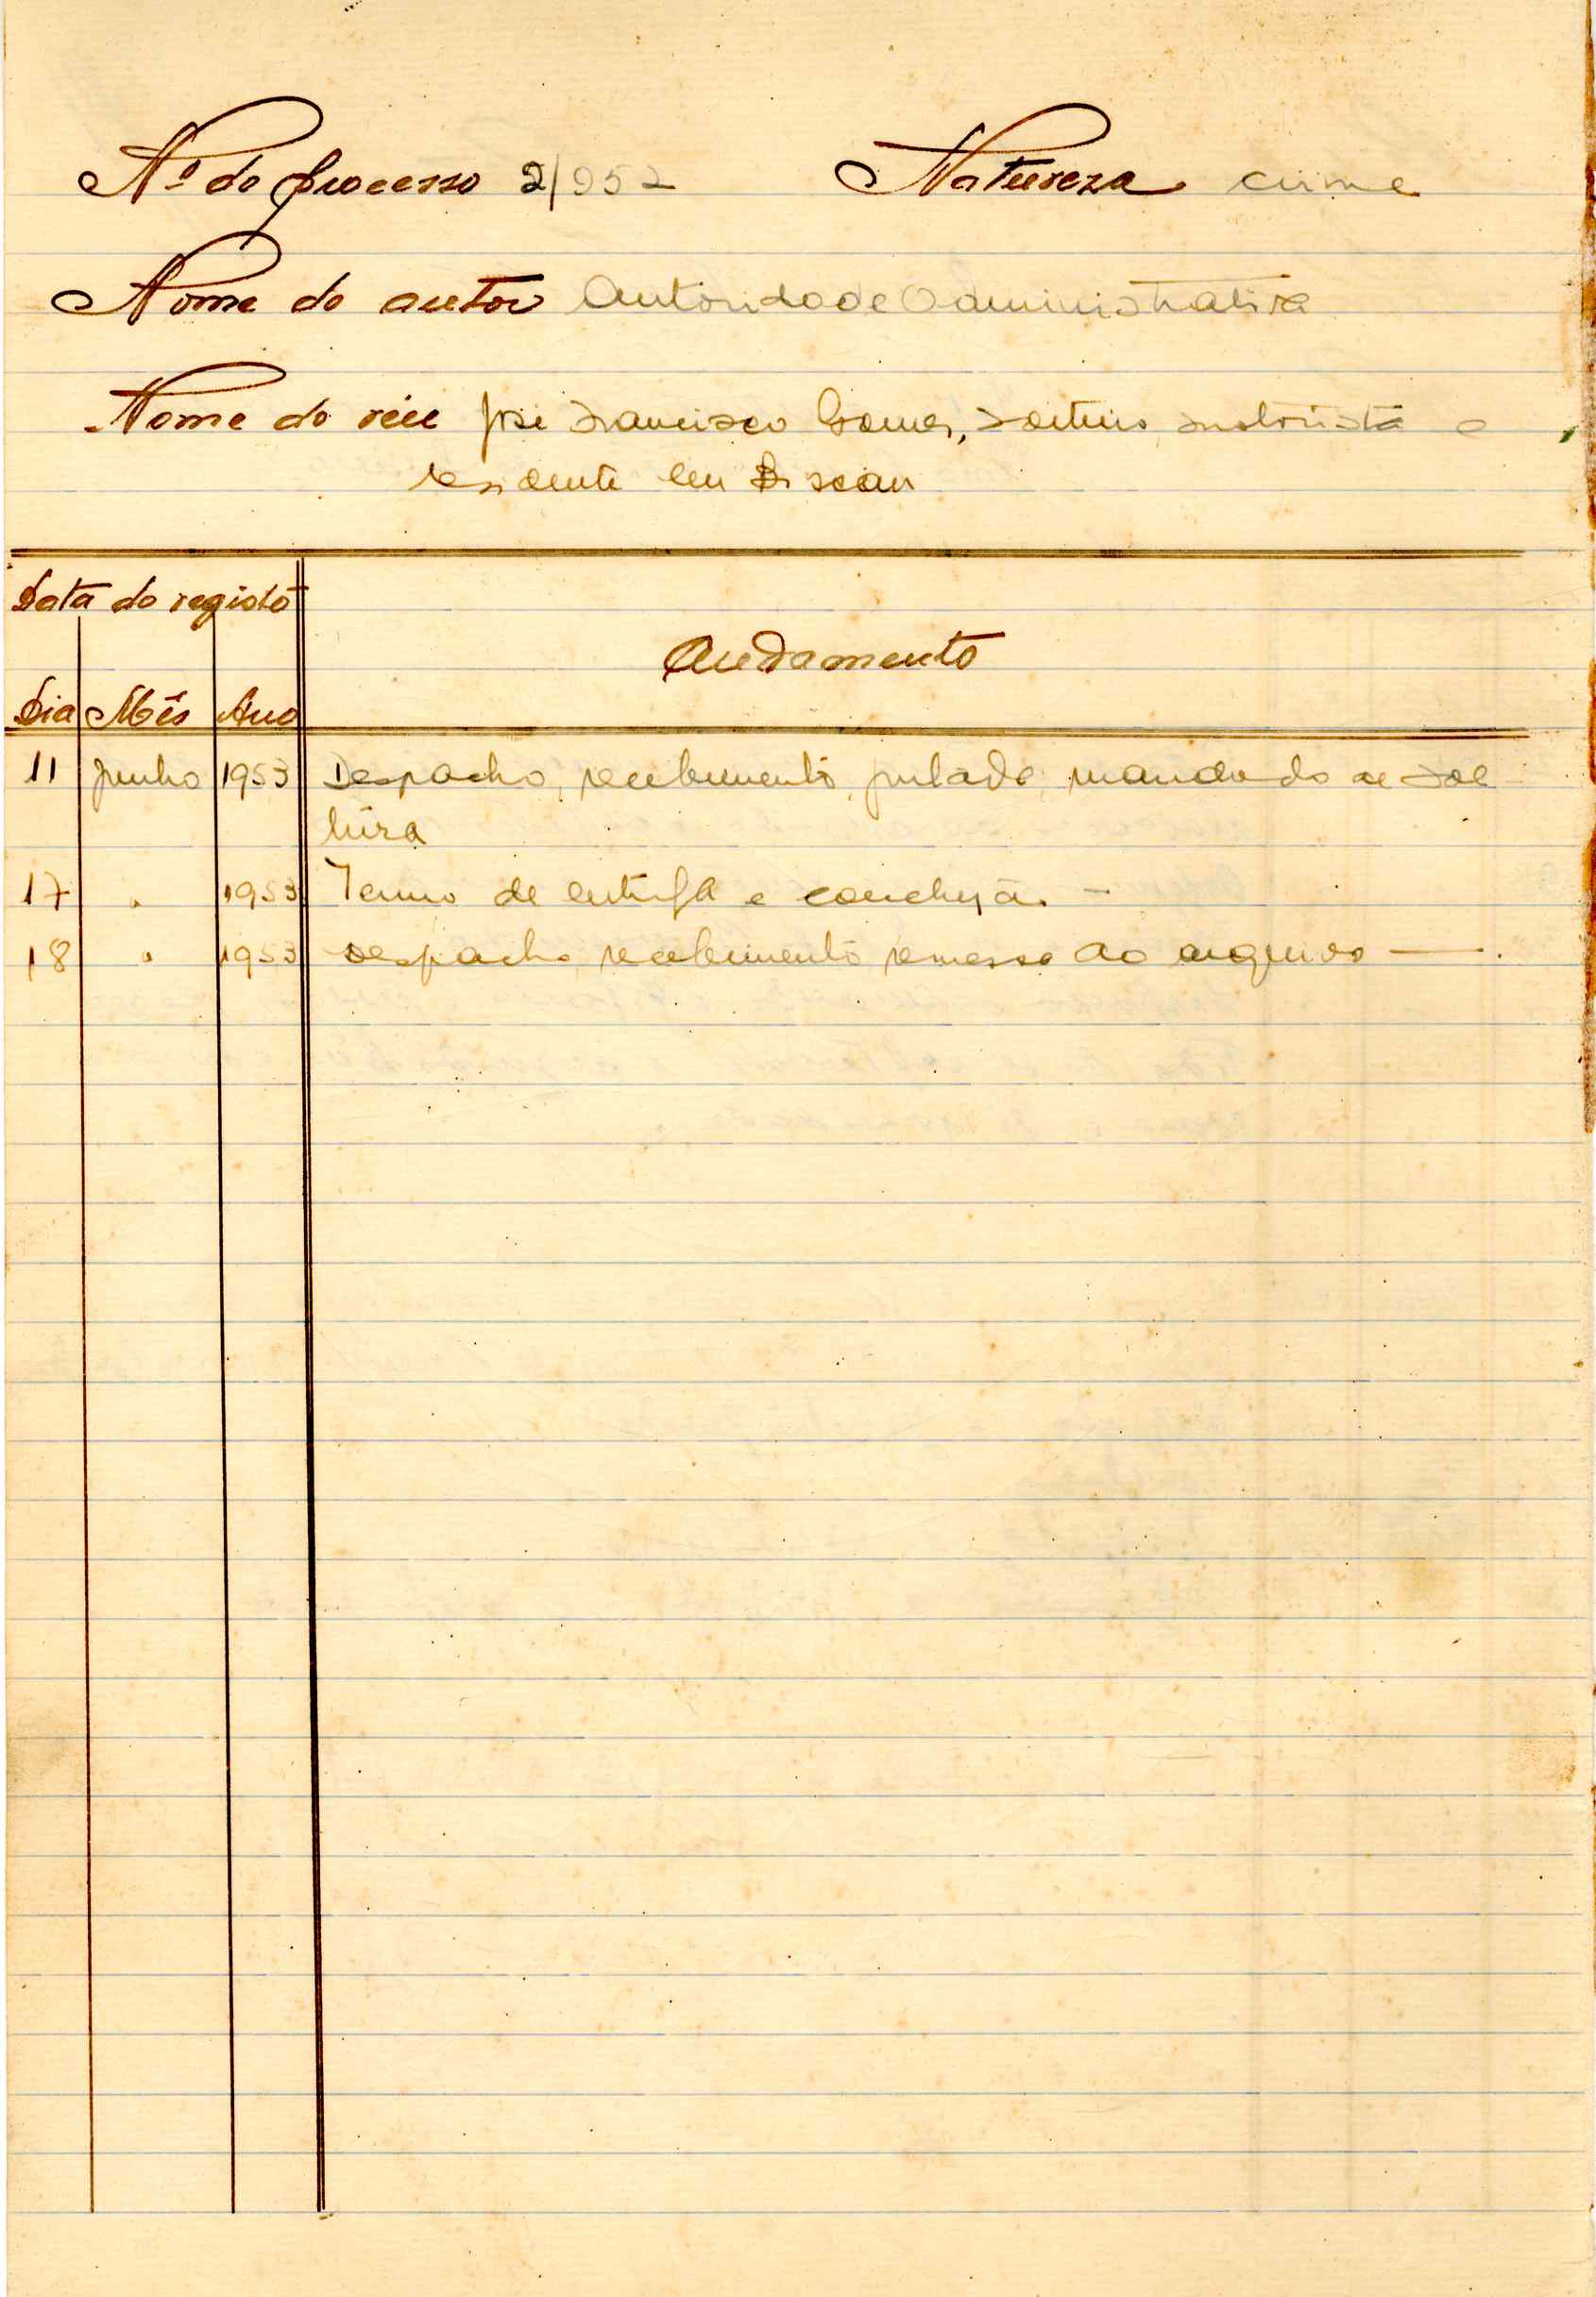 Nº do processo 2/952 Natureza crime
Nome do autor Autoridade Administrativa
Nome do réu José Francisco Gomes, solteiro, motorista e
residente em Bissau
Data do registo
Andamento
Dia Mês Ano
11 Junho 1953 Despacho, recebimento, juntada, mandado de sol
tura
17 " 1953 Termo de entrega e conclusão. —
18 " 1953 Despacho, recebimento remessa ao arquivo —.